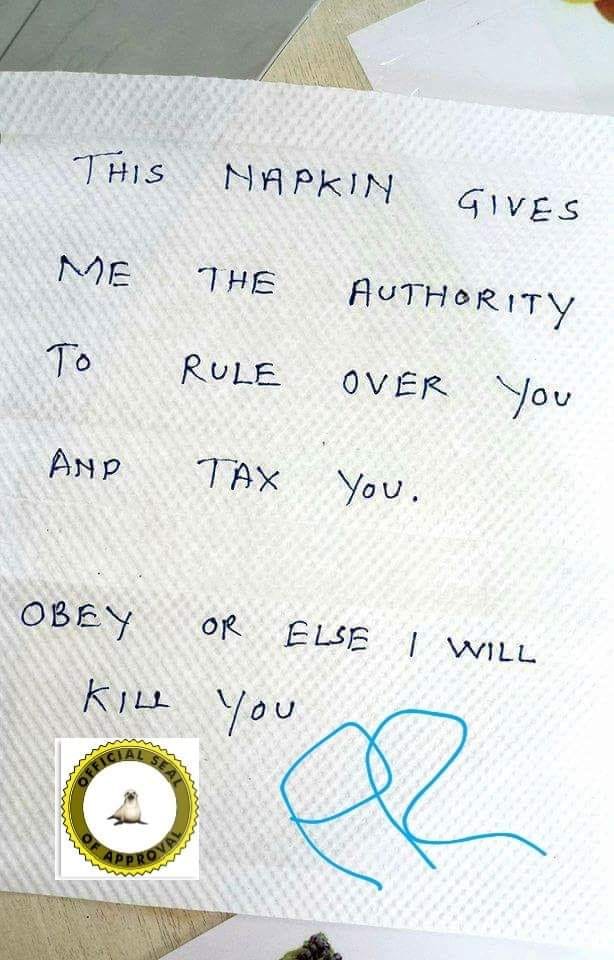 THIS NAPKIN GIVES
ME THE AUTHORITY
TO RULE OVER YOU
AND TAX YOU.
OBEY OR ELSE I WILL
KILL YOU
OFFICIAL SEAL
OF APPROVAL